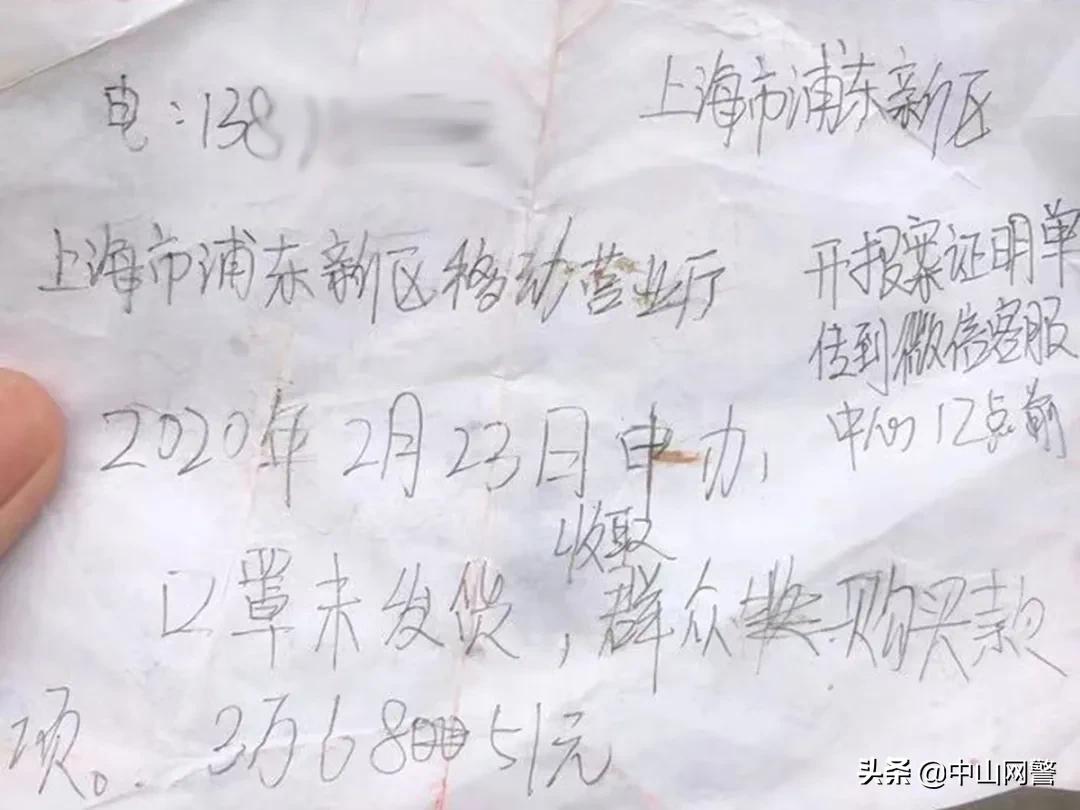 电:138
上海市浦东新区
上海市浦东新区移动营业厅
开报案证明单
传到微信客服
中心 12点前
2020年2月23日申办,
收取
口罩未发货,群众购买款
项。3万6851元
头条 @中山网警